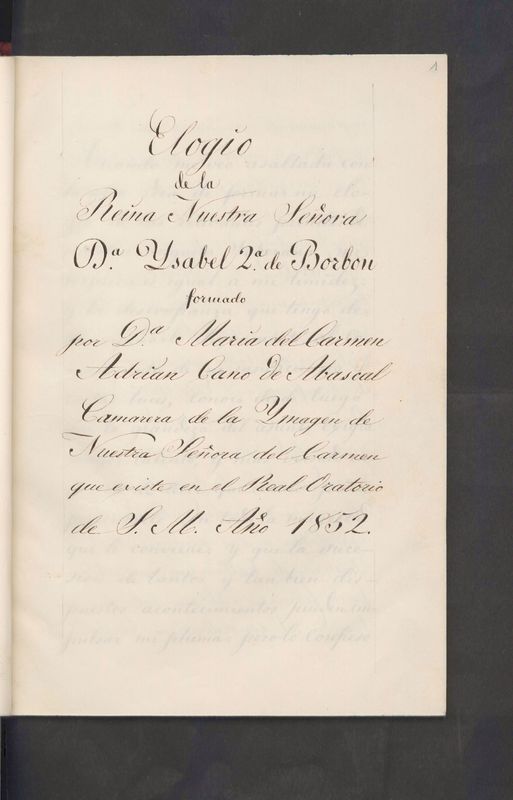 1
Elogio
de la
Reina Nuestra Señora
D.ª Ysabel 2.ª de Borbon
formado
por D.ª Maria del Carmen
Adrian Cano de Abascal
Camarera de la Ymagen de
Nuestra Señora del Carmen
que existe en el Real Oratorio
de S. M. Año 1852.